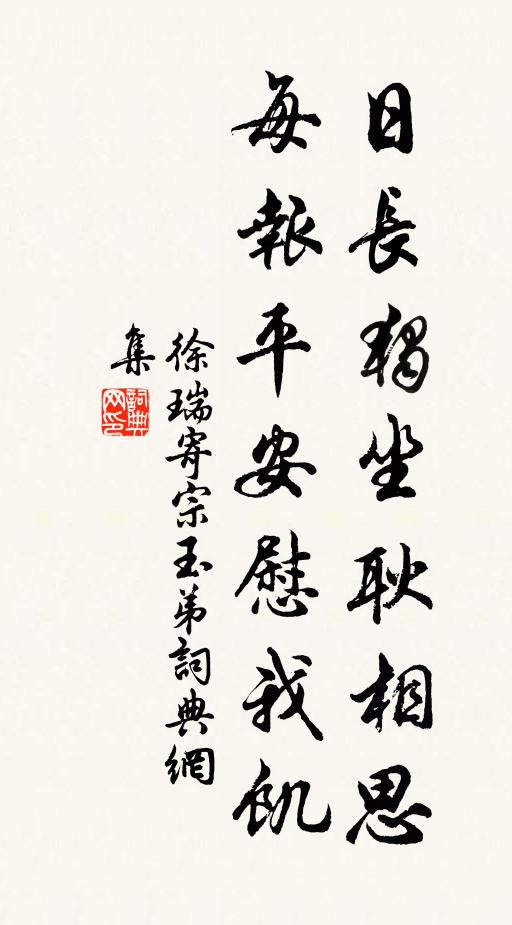 日長獨坐耿相思
每報平安慰我飢
徐瑞寄宗玉弟詞典網
集
詞典
网印